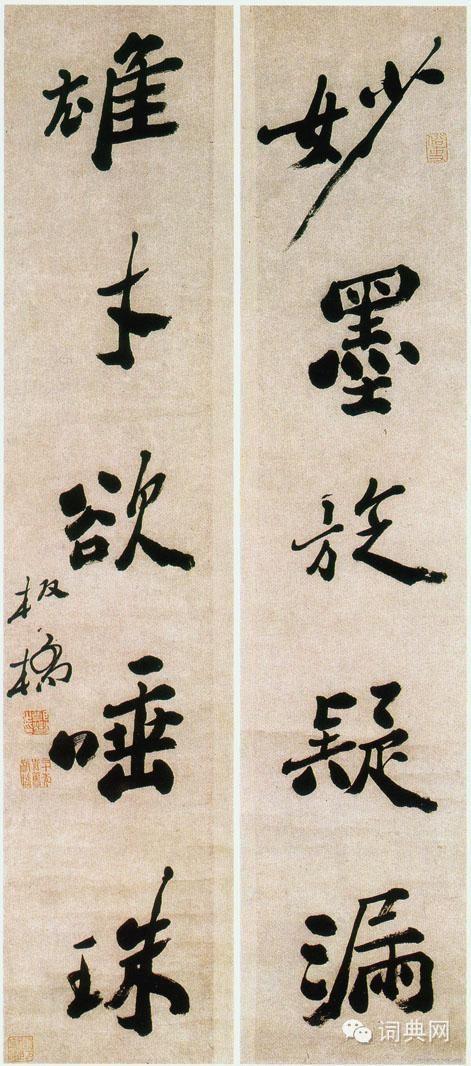 妙墨旋疑漏
雄才欲唾珠
板橋
词典网